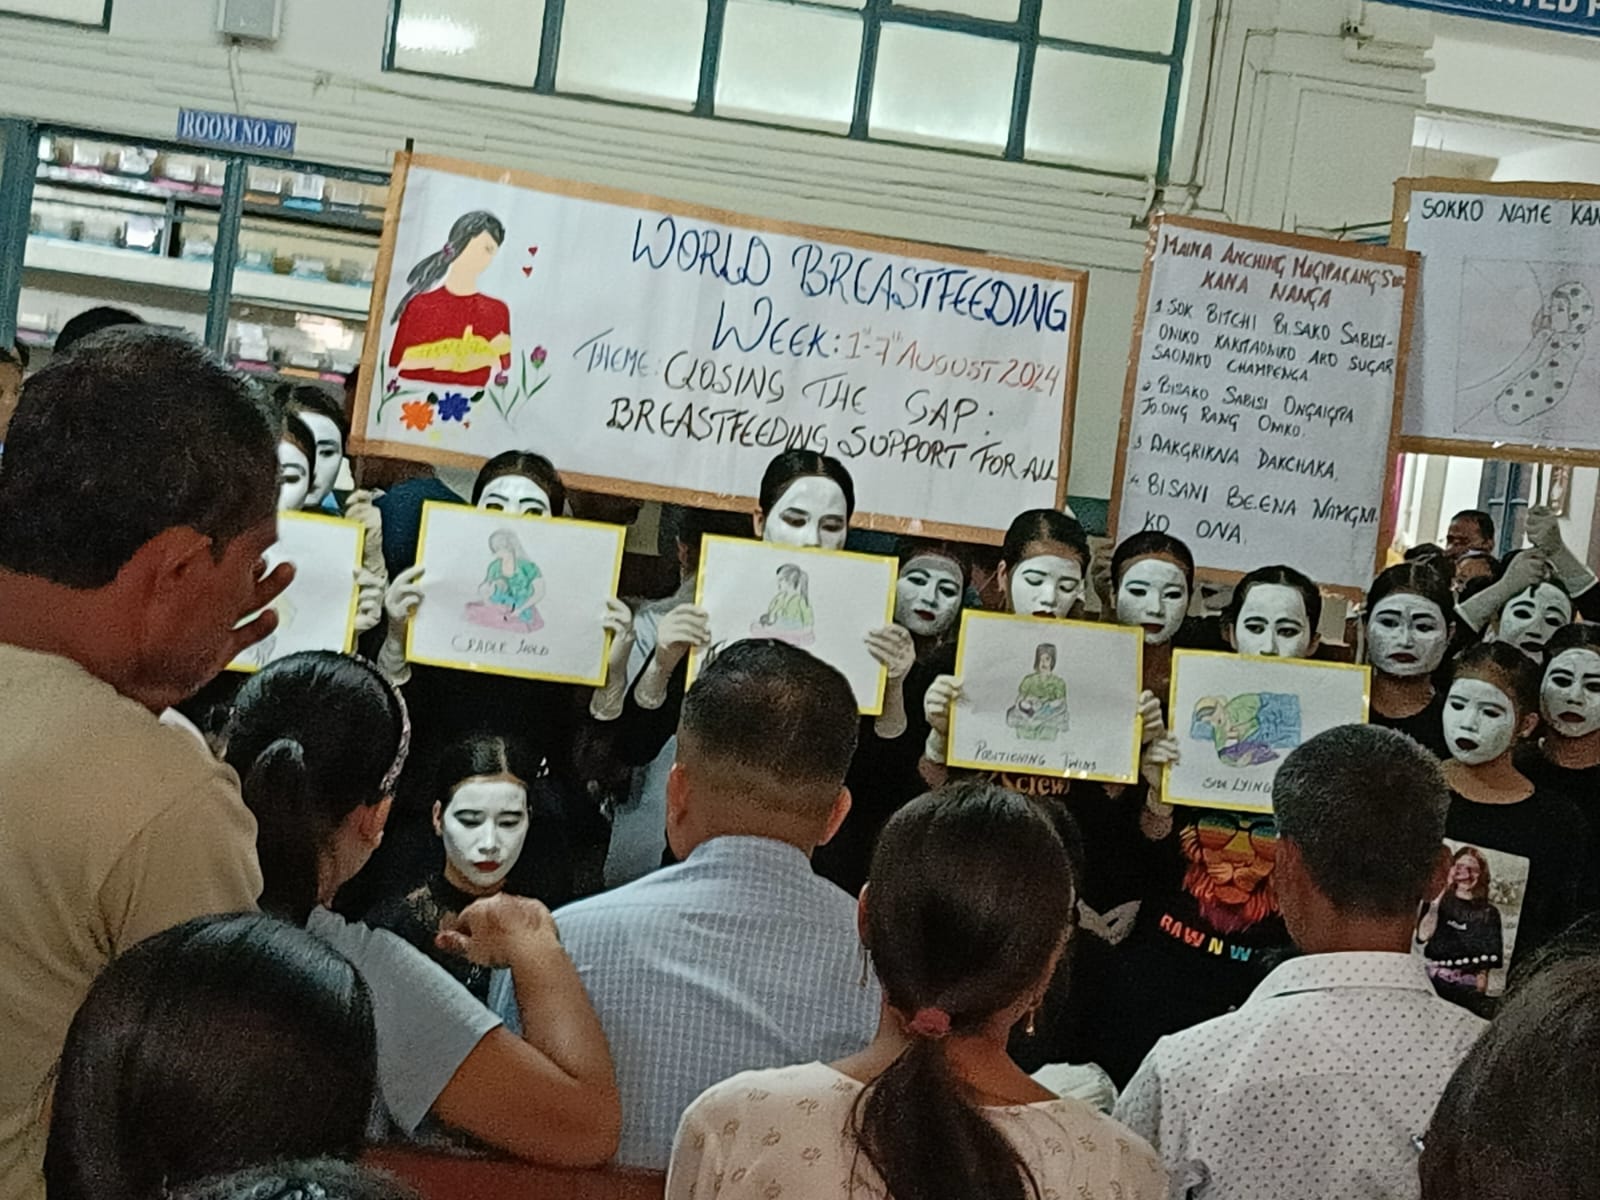 ROOM NO. 09
WORLD BREASTFEEDING
WEEK: 1st-7th AUGUST 2024
THEME: CLOSING THE GAP:
BREASTFEEDING SUPPORT FOR ALL
KANA NANGA
1. SOK BITCHI BISAKO SABISI-
ONIKO KAKITAONIKO ARO SUGAR
SAONIKO CHAMPENGA.
2. BISAKO SABISI
JO.ONG RANG ONIKO.
3. DAKGRIKNA DAKCHAKA.
4. BISANI BE.ENA NAMGNI-
KO ONA.
SOKKO NAME
CRADLE HOLD
POSITIONING TWINS
SIDE LYING
RAW N W